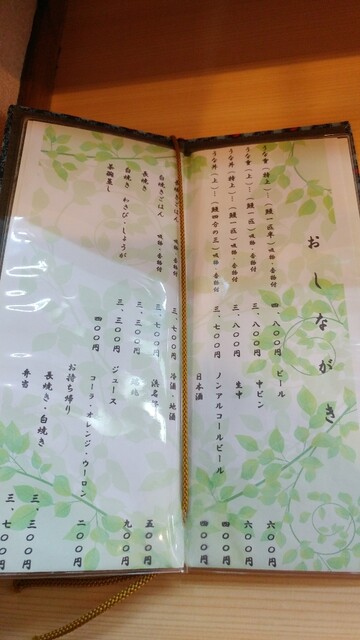 おしながき
うな重(特上)ー(鰻一匹半)吸物・香物付
四、八〇〇円
うな重(上)ー(鰻一匹)吸物・香物付
三、八〇〇円
うな丼(特上)ー(鰻一匹)吸物・香物付
うな丼(上)ー(鰻四分の三)吸物・香物付
三、七〇〇円
ビール
中ビン
六〇〇円
生中
六〇〇円
ノンアルコールビール
四〇〇円
日本酒
四〇〇円
吸物・香物付
三、七〇〇円
白焼きごはん
吸物・香物付
三、七〇〇円
長焼き
三、三〇〇円
白焼き わさび・しょうが
三、三〇〇円
茶碗蒸し
四〇〇円
冷酒・地酒
五〇〇円
九〇〇円
ジュース
コーラ・オレンジ・ウーロン
二〇〇円
お持ち帰り
長焼き・白焼き
三、三〇〇円
弁当
三、七〇〇円